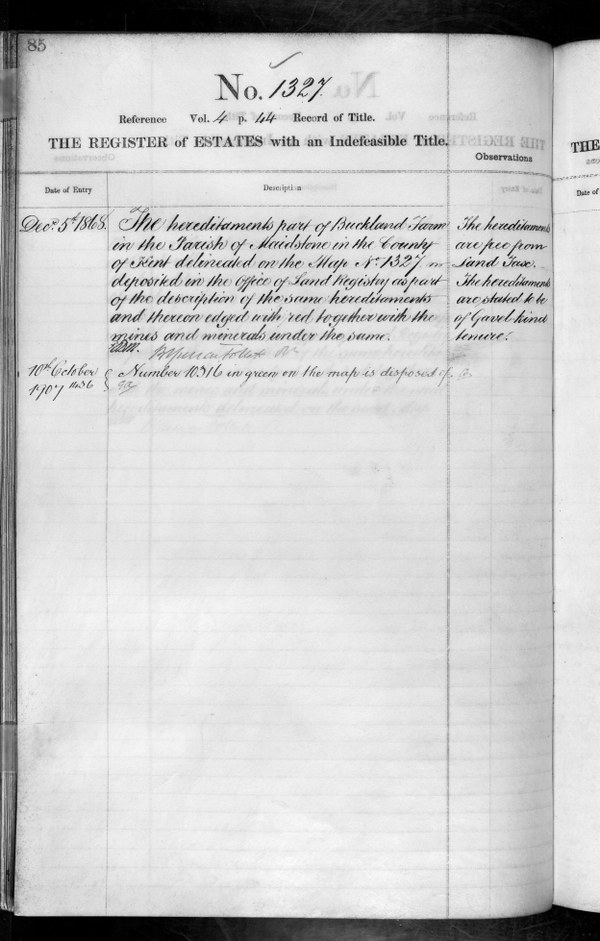 85
No. 1327.
Reference Vol. 4 p. 44 Record of Title.
THE REGISTER of ESTATES with an Indefeasible Title.
Observations
Date of Entry
Description
Decr. 5th 1868.
The hereditaments part of Buckland Farm
in the Parish of Maidstone in the County
of Kent delineated on the Map No. 1327
deposited in the Office of Land Registry as part
of the description of the same hereditaments
and thereon edged with red together with the
mines and minerals under the same.
The hereditaments
are free from
Land Tax.
The hereditaments
are stated to be
of Gavelkind
tenure.
10th October
1907
Number 10316 in green on the map is disposed of
THE
Date of